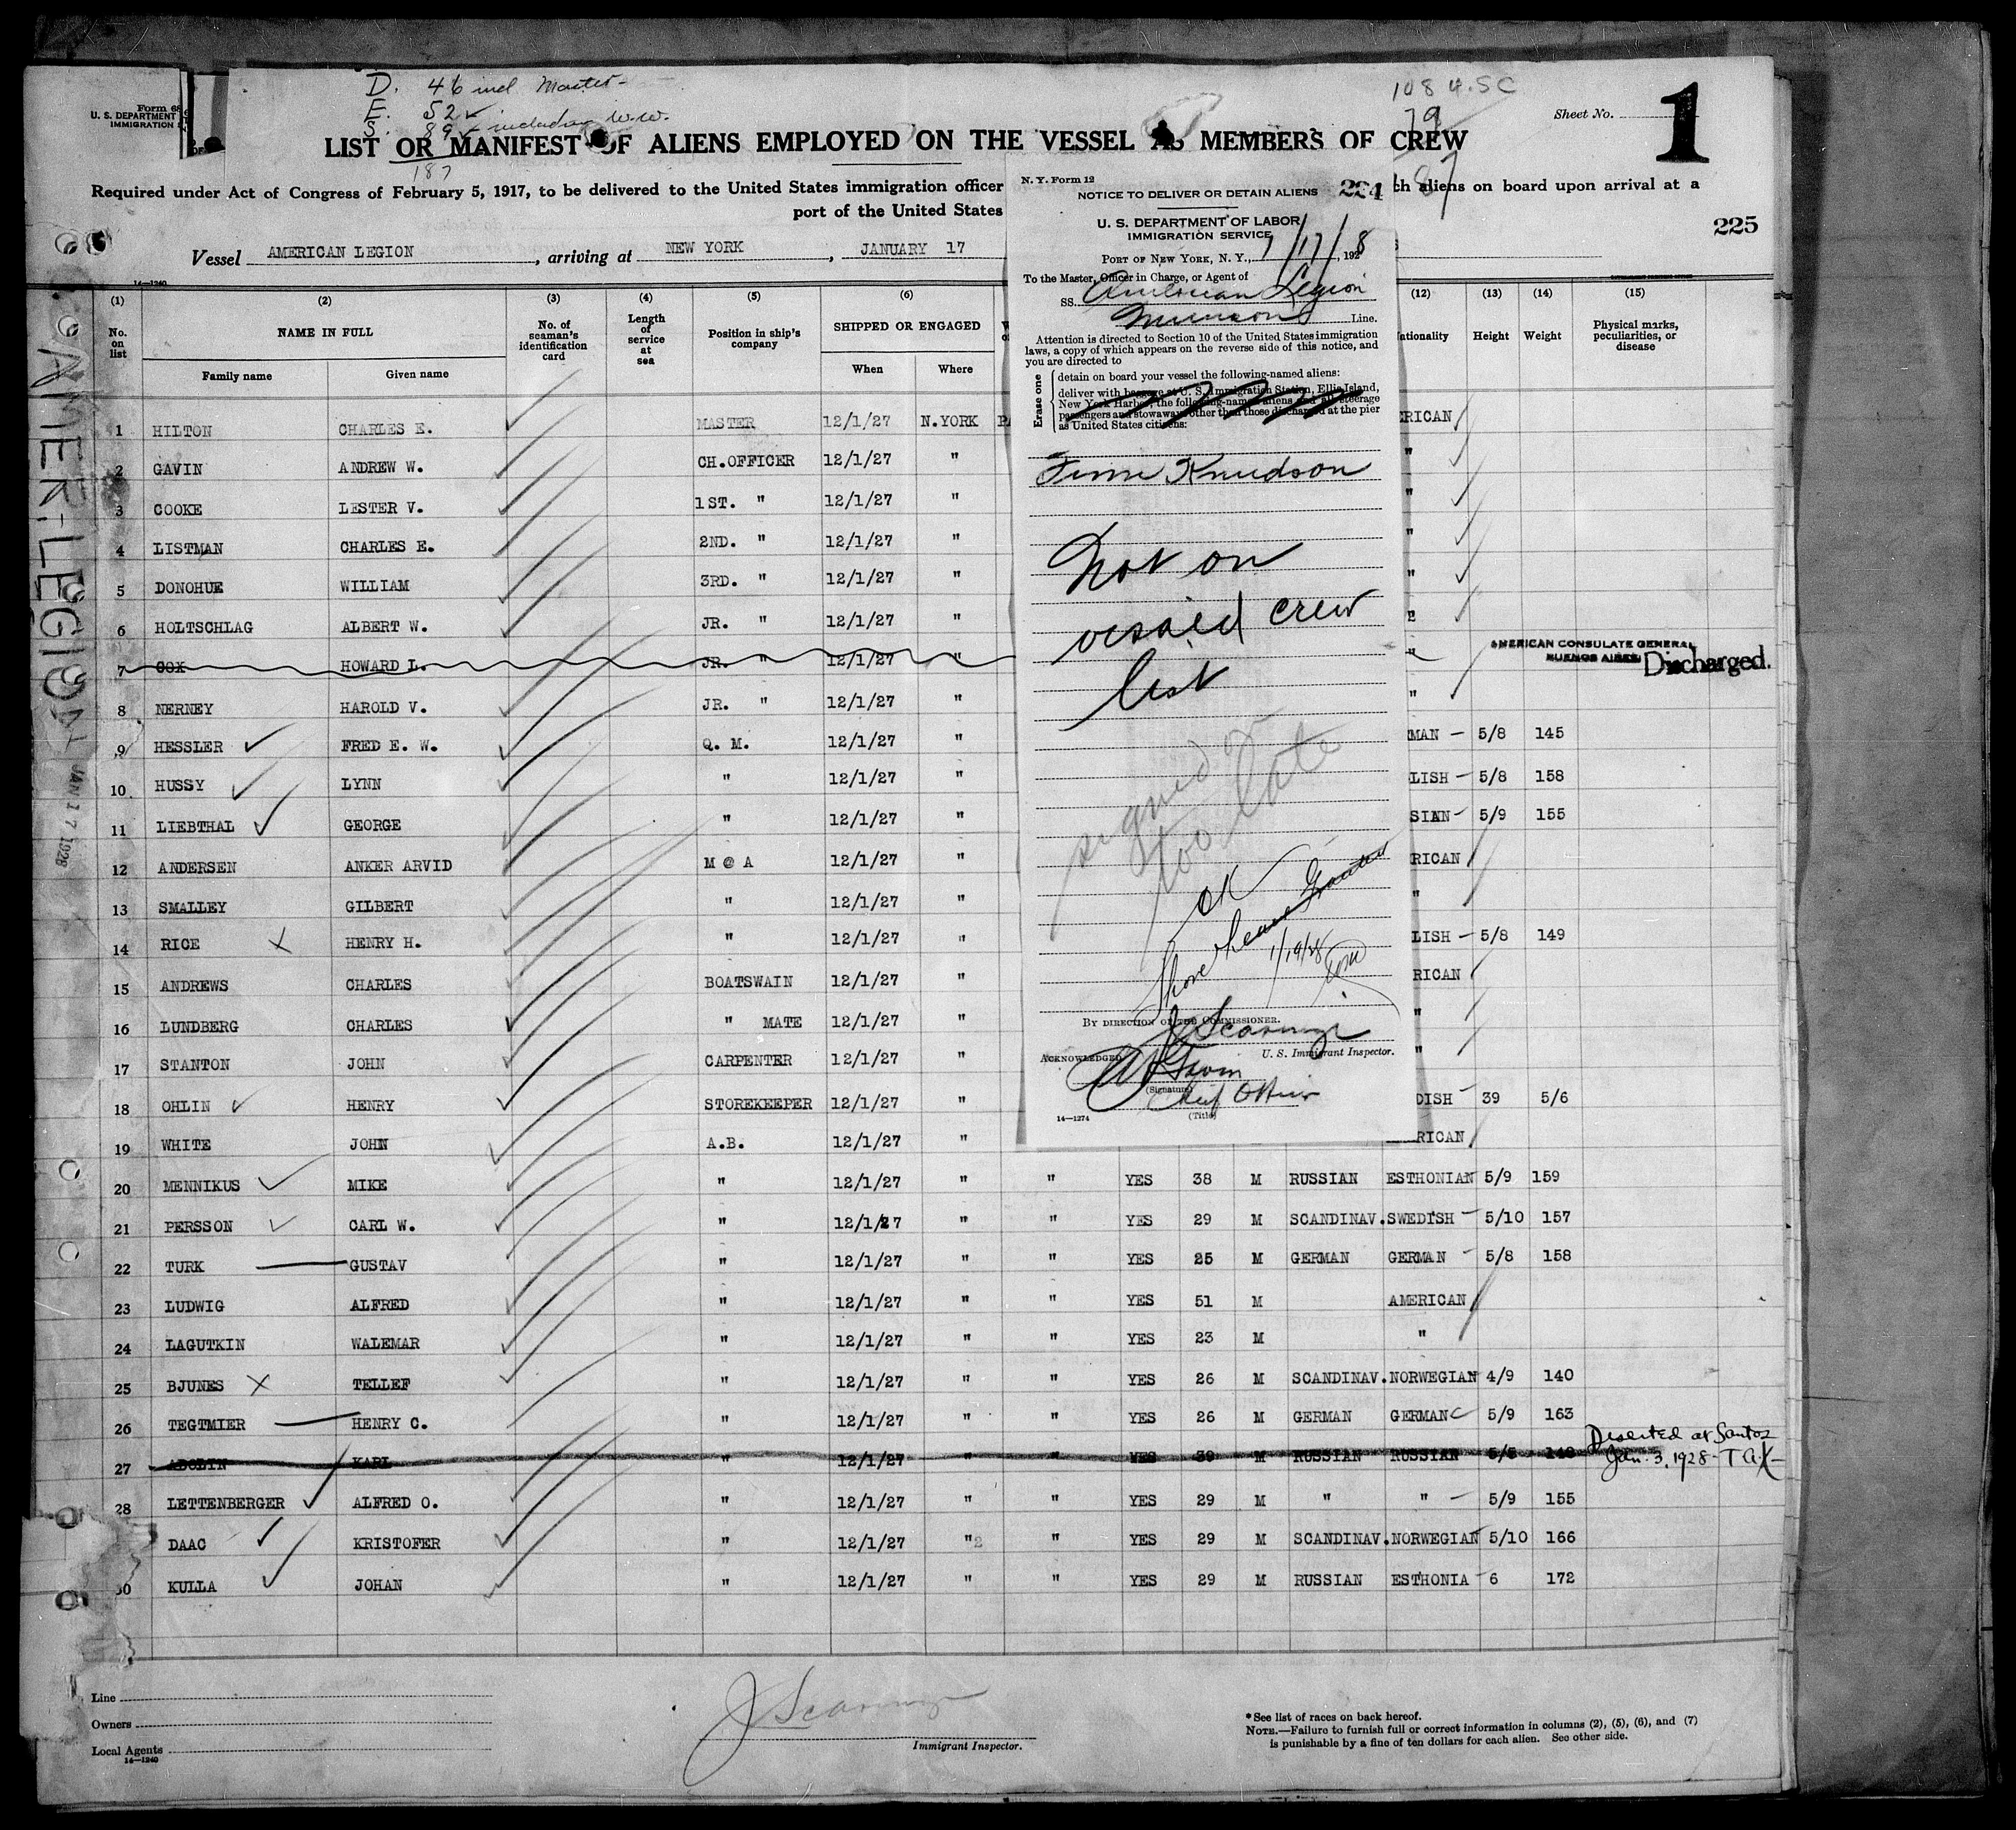 D. 46 incl Master-
E. 52 ✓
S. 89 ✓ including W.W.
187
108 U.SC
79
187
Form 68
U. S. DEPARTMENT OF
IMMIGRATION
Sheet No.
1
LIST OR MANIFEST OF ALIENS EMPLOYED ON THE VESSEL AS MEMBERS OF CREW
Required under Act of Congress of February 5, 1917, to be delivered to the United States immigration officer
ch aliens on board upon arrival at a
port of the United States
225
Vessel AMERICAN LEGION, arriving at NEW YORK, JANUARY 17
14—1240
AMER-LEGION
JAN 17 1928
(1) (2) (3) (4) (5) (6) (12) (13) (14) (15)
No. on list
NAME IN FULL
Family name Given name
No. of seaman's identification card
Length of service at sea
Position in ship's company
SHIPPED OR ENGAGED
When Where
ationality Height Weight
Physical marks, peculiarities, or disease
1 HILTON CHARLES E. MASTER 12/1/27 N.YORK RICAN
2 GAVIN ANDREW W. CH.OFFICER 12/1/27 " "
3 COOKE LESTER V. 1ST. " 12/1/27 " "
4 LISTMAN CHARLES E. 2ND. " 12/1/27 " "
5 DONOHUE WILLIAM 3RD. " 12/1/27 " "
6 HOLTSCHLAG ALBERT W. JR. " 12/1/27 "
7 COX HOWARD L. JR. " 12/1/27 " " AMERICAN CONSULATE GENERAL BUENOS AIRES Discharged.
8 NERNEY HAROLD V. JR. " 12/1/27 " "
9 HESSLER FRED E. W. Q. M. 12/1/27 " MAN - 5/8 145
10 HUSSY LYNN " 12/1/27 " LISH - 5/8 158
11 LIEBTHAL GEORGE " 12/1/27 " SIAN - 5/9 155
12 ANDERSEN ANKER ARVID M @ A 12/1/27 " RICAN
13 SMALLEY GILBERT " 12/1/27 " "
14 RICE X HENRY H. " 12/1/27 " LISH - 5/8 149
15 ANDREWS CHARLES BOATSWAIN 12/1/27 " RICAN
16 LUNDBERG CHARLES " MATE 12/1/27 " "
17 STANTON JOHN CARPENTER 12/1/27 " "
18 OHLIN HENRY STOREKEEPER 12/1/27 " DISH - 39 5/6
19 WHITE JOHN A.B. 12/1/27 " RICAN
20 MENNIKUS MIKE " 12/1/27 " " YES 38 M RUSSIAN ESTHONIAN 5/9 159
21 PERSSON CARL W. " 12/1/27 " " YES 29 M SCANDINAV. SWEDISH - 5/10 157
22 TURK GUSTAV " 12/1/27 " " YES 25 M GERMAN GERMAN - 5/8 158
23 LUDWIG ALFRED " 12/1/27 " " YES 51 M AMERICAN
24 LAGUTKIN WALEMAR " 12/1/27 " " YES 23 M "
25 BJUNES X TELLEF " 12/1/27 " " YES 26 M SCANDINAV. NORWEGIAN 4/9 140
26 TEGTMIER HENRY C. " 12/1/27 " " YES 26 M GERMAN GERMAN 5/9 163
27 ADOLIN KARL " 12/1/27 " " YES 39 M RUSSIAN RUSSIAN 5/5 148 Deserted at Santos Jan. 3, 1928-
28 LETTENBERGER ALFRED O. " 12/1/27 " " YES 29 M " " - 5/9 155
DAAC KRISTOFER " 12/1/27 "2 " YES 29 M SCANDINAV. NORWEGIAN 5/10 166
30 KULLA JOHAN " 12/1/27 " " YES 29 M RUSSIAN ESTHONIA - 6 172
N. Y. Form 12
NOTICE TO DELIVER OR DETAIN ALIENS 224
U. S. DEPARTMENT OF LABOR
IMMIGRATION SERVICE
PORT OF NEW YORK, N. Y., 1/17/, 1928
To the Master, Officer in Charge, or Agent of
SS. American Legion
Munson Line.
Attention is directed to Section 10 of the United States immigration
laws, a copy of which appears on the reverse side of this notice, and
you are directed to
Erase one
detain on board your vessel the following-named aliens:
deliver with baggage at U. S. Immigration Station, Ellis Island,
New York Harbor, the following-named aliens and all steerage
passengers and stowaways other than those discharged at the pier
as United States citizens:
Knudson
Not on
visaed crew
list
signed
too late
OK
Shore leave granted
1/19/28
BY DIRECTION OF THE COMMISSIONER.
J Scarinzi
U. S. Immigrant Inspector.
ACKNOWLEDGED
AW Gavin
(Signature)
Chief Officer
(Title)
14—1274
Line
Owners
Local Agents
14—1240
J Scarinzi
Immigrant Inspector.
* See list of races on back hereof.
NOTE.—Failure to furnish full or correct information in columns (2), (5), (6), and (7)
is punishable by a fine of ten dollars for each alien. See other side.